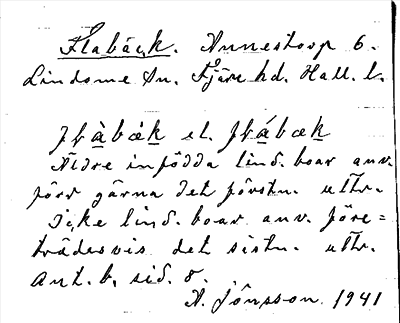 Flabäck. Annestorp 6.
Lindome Sn. Fjäre hd. Hall. l.
flàbæ̀k el. flábæk
Äldre infödda lind. boar anv.
förr gärna det förstn. uttr.
Icke lind. boar anv. före=
trädesvis det sistn. uttr.
Ant. b, sid. 8.
A. Jönsson 1941